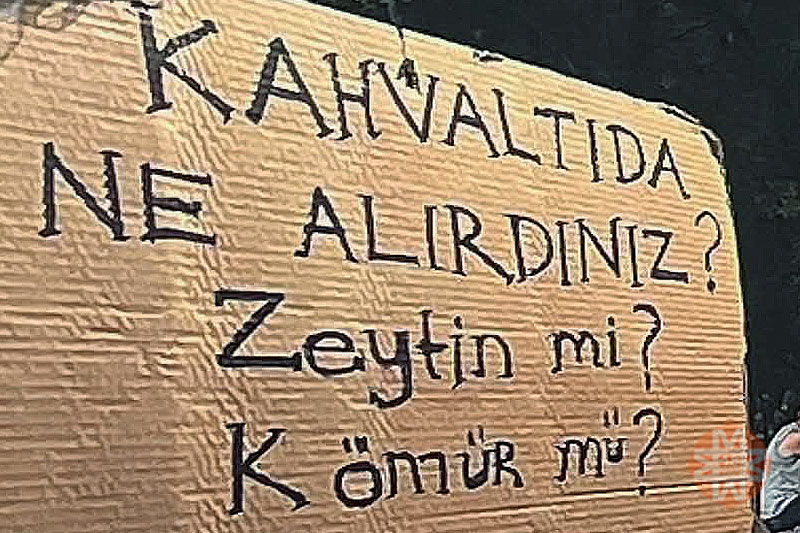 KAHVALTIDA
NE ALIRDINIZ?
Zeytin mi?
KömüR mü?